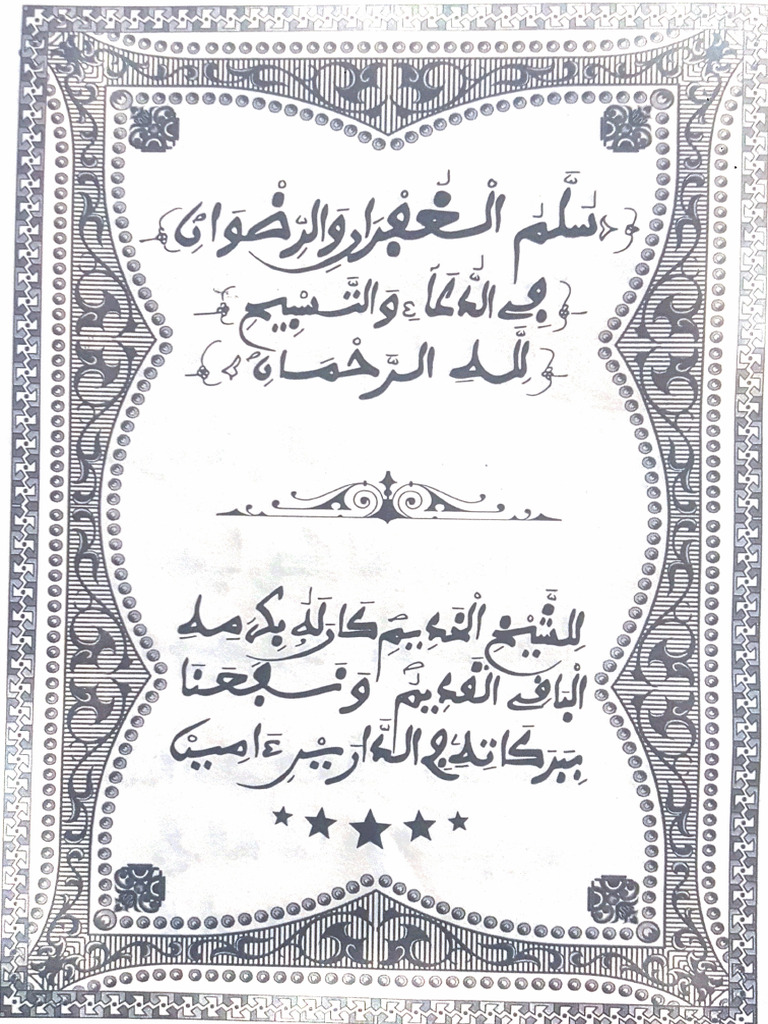 سُلَّمُ الْغُفْرَانِ وَالرِّضْوَانْ
فِي الدُّعَاءِ وَالتَّسْبِيحِ
لِلَّهِ الرَّحْمَانْ
لِلشَّيْخِ الْخَدِيمِ كَانَ لَهُ بِكَرَمِهِ
الْبَاقِي الْقَدِيمُ وَنَفَعَنَا
بِبَرَكَاتِهِ فِي الدَّارَيْنِ ءَامِينْ